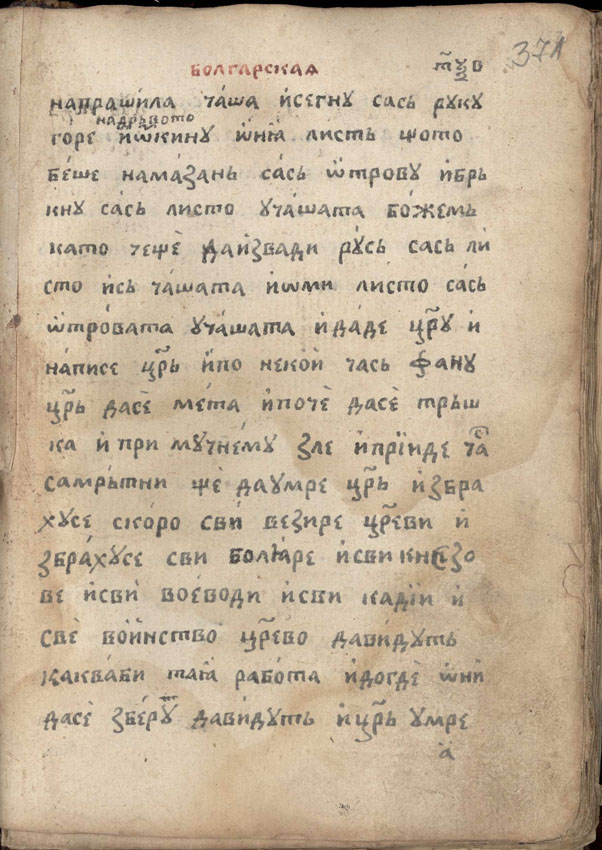 БОЛГАРСКАЯ т҃ѯв 371
напрашила ча́ша и҆сегну сась руку
надрьвото
горе и҆ѡкину ѡ҆нїа листь щото
бе́ше нама́зань са́сь ѿтрову и҆брь
кну са́сь листо уча́шата бо́жемь
като чещѐ даи҆звади ру́сь сась ли
сто и҆сь ча́шата и҆ѡми ли́сто са́сь
ѿтро́вата уча́шата и҆да́де цр҃у и҆
на́писе цр҃ь и҆по некой ча́сь фану
цр҃ь дасѐ мета и҆почѐ дасѐ тръш
ка и҆ при му́чнему зле и҆прїиде ча҇
самрьтни щѐ даумре цр҃ь и҆збра
хусе скоро сви́ везире цр҃еви и҆
збра́хусе сви болꙗре и҆сви кнезо
ве и҆сви́ воево́ди и҆сви кадїи и҆
свѐ во́инство цр҃ево да́ви́дуть
каква́би таꙗ рабо́та и҆догдѐ ѡ҆ни
дасѐ збе́рут да́ви́дуть и҆ цр҃ь умре
а